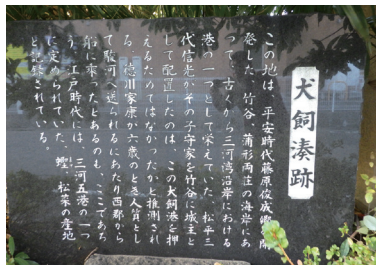 犬飼湊跡
この地は、平安時代藤原俊成卿が開
発した、竹谷、蒲形両荘の海岸にあ
って、古くから三河湾沿岸における
港の一つとして栄えていた。松平三
代信光がその子守家を竹谷に城主と
して配置したのは、この犬飼港を押
えるためではなかったかと推測され
る。徳川家康が六歳のとき人質とし
て駿河へ送られるにあたり西郡から
船に乗ったとあるのも、ここであろ
う。江戸時代には、三河五港の一つ
に定められていた。鰹、松菜の産地
と記録されている。